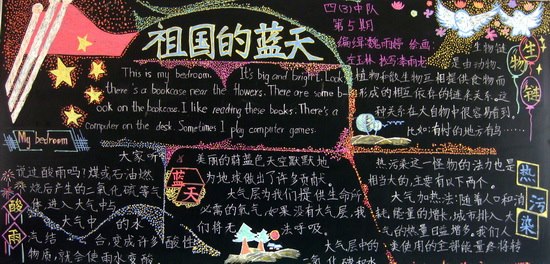 祖国的蓝天
四(3)中队
第5期
This is my bedroom. It's big and bright. Look
there's a bookcase near the flowers. There are some b-
ook on the bookcase. I like reading these books. There's a
computer on the desk. Sometimes I play computer games.
My bedroom
生物链
生物链
是由动物、
植物和微生物互相提供食物而
形成的相互依存的链条关系。这
种关系在大自然中很容易看到。
比如:有树的地方有鸟
酸雨
大家听
说过酸雨吗?煤或石油燃
烧后产生的二氧化硫等
体进入大气中与
大气中的水
汽结合,变成许多酸性
物质,就会使雨水变酸
蓝天
美丽的蔚蓝色天空默默地
为地球做出了许多贡献。
大气层为我们提供生命所
必需的氧气,如果没有大气层,我
们将无法呼吸。
大气层中的
热污染
热污染这一怪物的法力也是
相当大的,主要有以下两个。
大气加热法:随着人口和消
耗能量的增长,城市排入大
气的热量日益增多。我们人
类使用的全部能量终将转